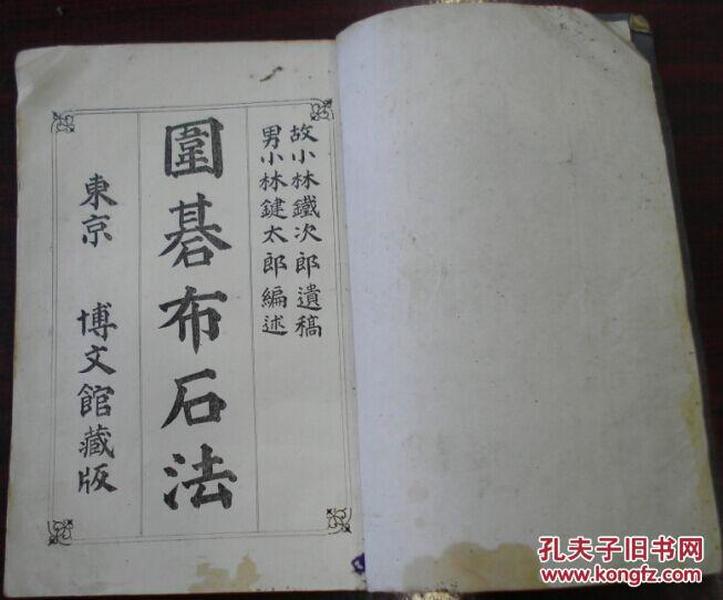 故小林鐵次郎遺稿
男小林鍵太郎編述
圍碁布石法
東京 博文館藏版
孔夫子旧书网
www.kongfz.com